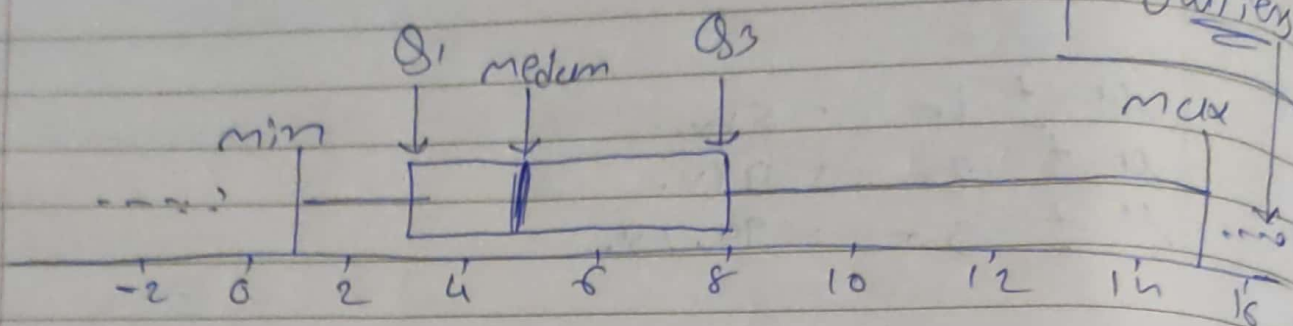 outliers
Q1 medum Q3
min max
-2 0 2 4 6 8 10 12 14 16